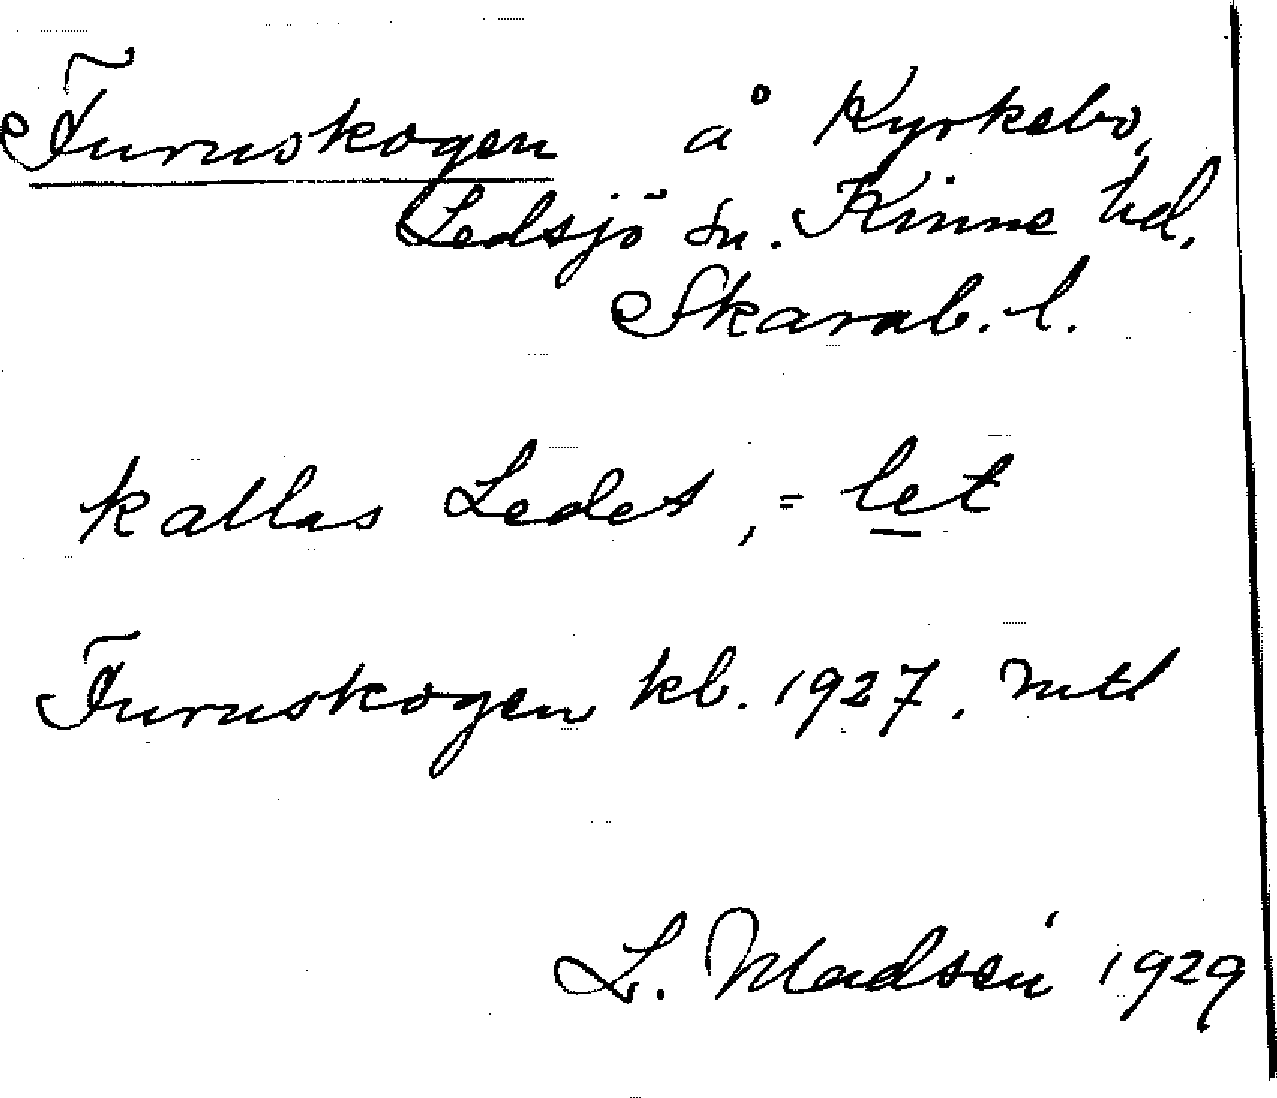 Furuskogen å Kyrkebo,
Ledsjö sn. Kinne hd,
Skarab. l.
kallas Ledet, = let
Furuskogen kb. 1927. mtl
L. Madsén 1929